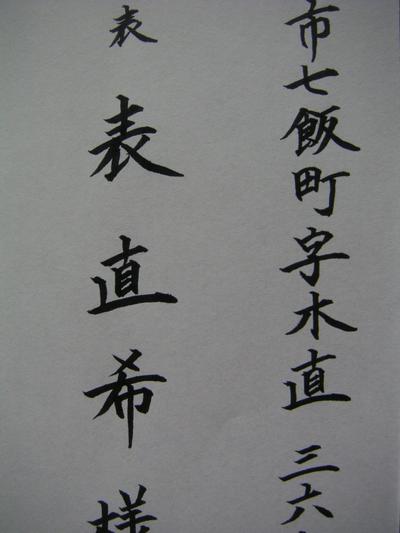 市七飯町字木直三六
表
表直希様